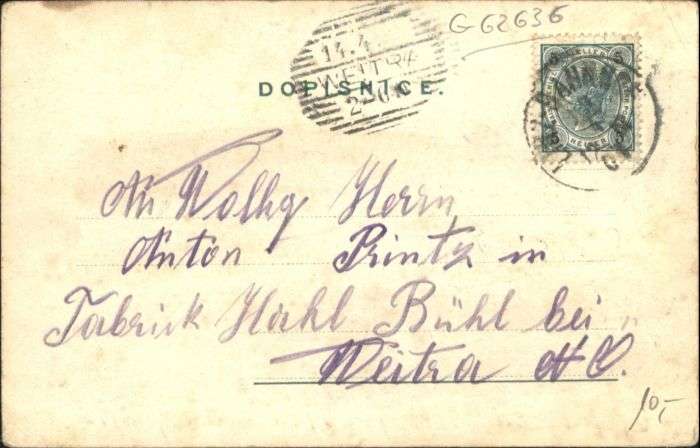 G 62636
14.4
WEITRA
DOPISNICE.
An Wolhg Herrn
Anton Printz in
Fabrick Hackl Bühl bei
Weitra N.O.
10,-